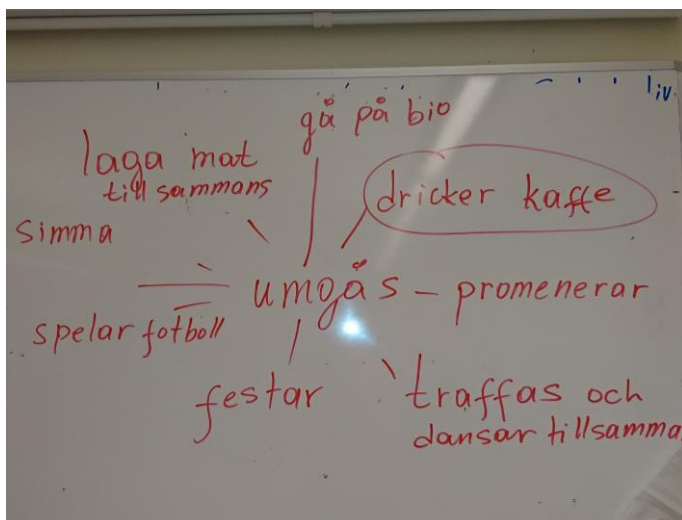 gå på bio
laga mat
tillsammans
dricker kaffe
simma
umgås - promenerar
spelar fotboll
festar
traffas och
dansar tillsamma